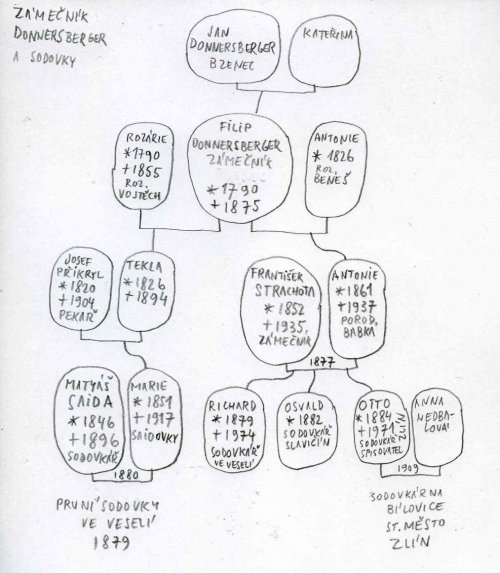 ZÁMEČNÍK
DONNERSBERGER
A SODOVKY
JAN
DONNERSBERGER
BZENEC
KATEŘINA
ROZÁRIE
*1790
+1855
ROZ.
VOJTĚCH
FILIP
DONNERSBERGER
ZÁMEČNÍK
*1790
+1875
ANTONIE
*1826
ROZ.
BENEŠ
JOSEF
PŘIKRYL
*1820
+1904
PEKAŘ
TEKLA
*1826
+1894
FRANTIŠEK
STRACHOTA
*1852
+1935,
ZÁMEČNÍK
ANTONIE
*1861
+1937
POROD.
BABKA
1877
MATYÁŠ
SAIDA
*1846
+1896
SODOVKÁŘ
MARIE
*1851
+1917
SAIDOVKY
1880
RICHARD
*1879
+1974
SODOVKÁŘ
VE VESELÍ
OSVALD
*1882
SODOVKÁŘ
SLAVIČÍN
OTTO
*1884
+1971
ZLÍN
SODOVKÁŘ
SPISOVATEL
ANNA
NEDBA-
LOVÁ
1909
PRVNÍ SODOVKY
VE VESELÍ
1879
SODOVKÁRNA
BÍLOVICE
ST. MĚSTO
ZLÍN